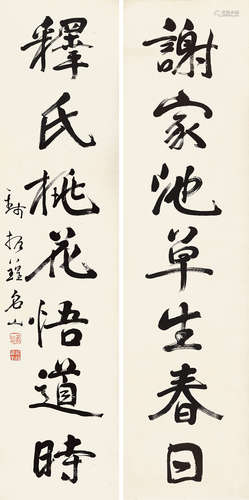 謝家池草生春日
釋氏桃花悟道時
錢振鍠名山